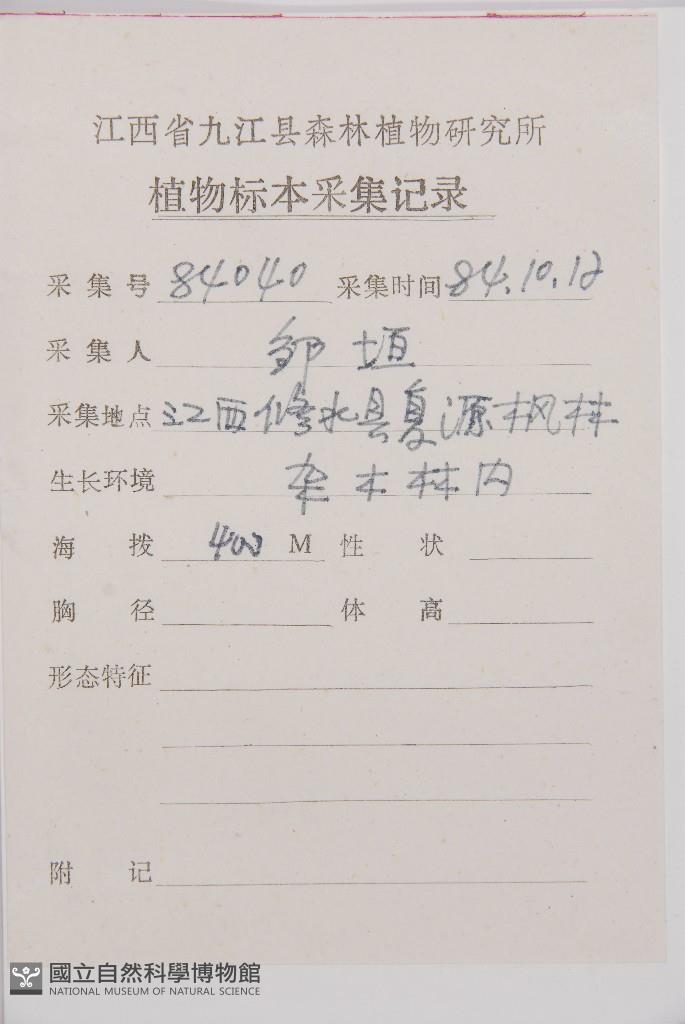 江西省九江县森林植物研究所
植物标本采集记录
采集号 84040 采集时间 84.10.12
采集人 邹垣
采集地点 江西修水县夏源枫林
生长环境 杂木林内
海拨 400 M 性状
胸径 体高
形态特征
附记
國立自然科學博物館
NATIONAL MUSEUM OF NATURAL SCIENCE